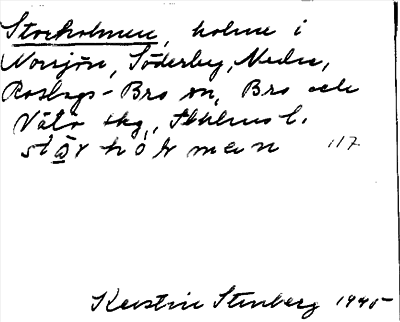 Storholmen, holme i
Norrsjön, Söderby, Nedre,
Roslags-Bro sn, Bro och
Vätö skg, Sthlms l.
stǡr hòlmen 117
Kerstin Stenberg 1945